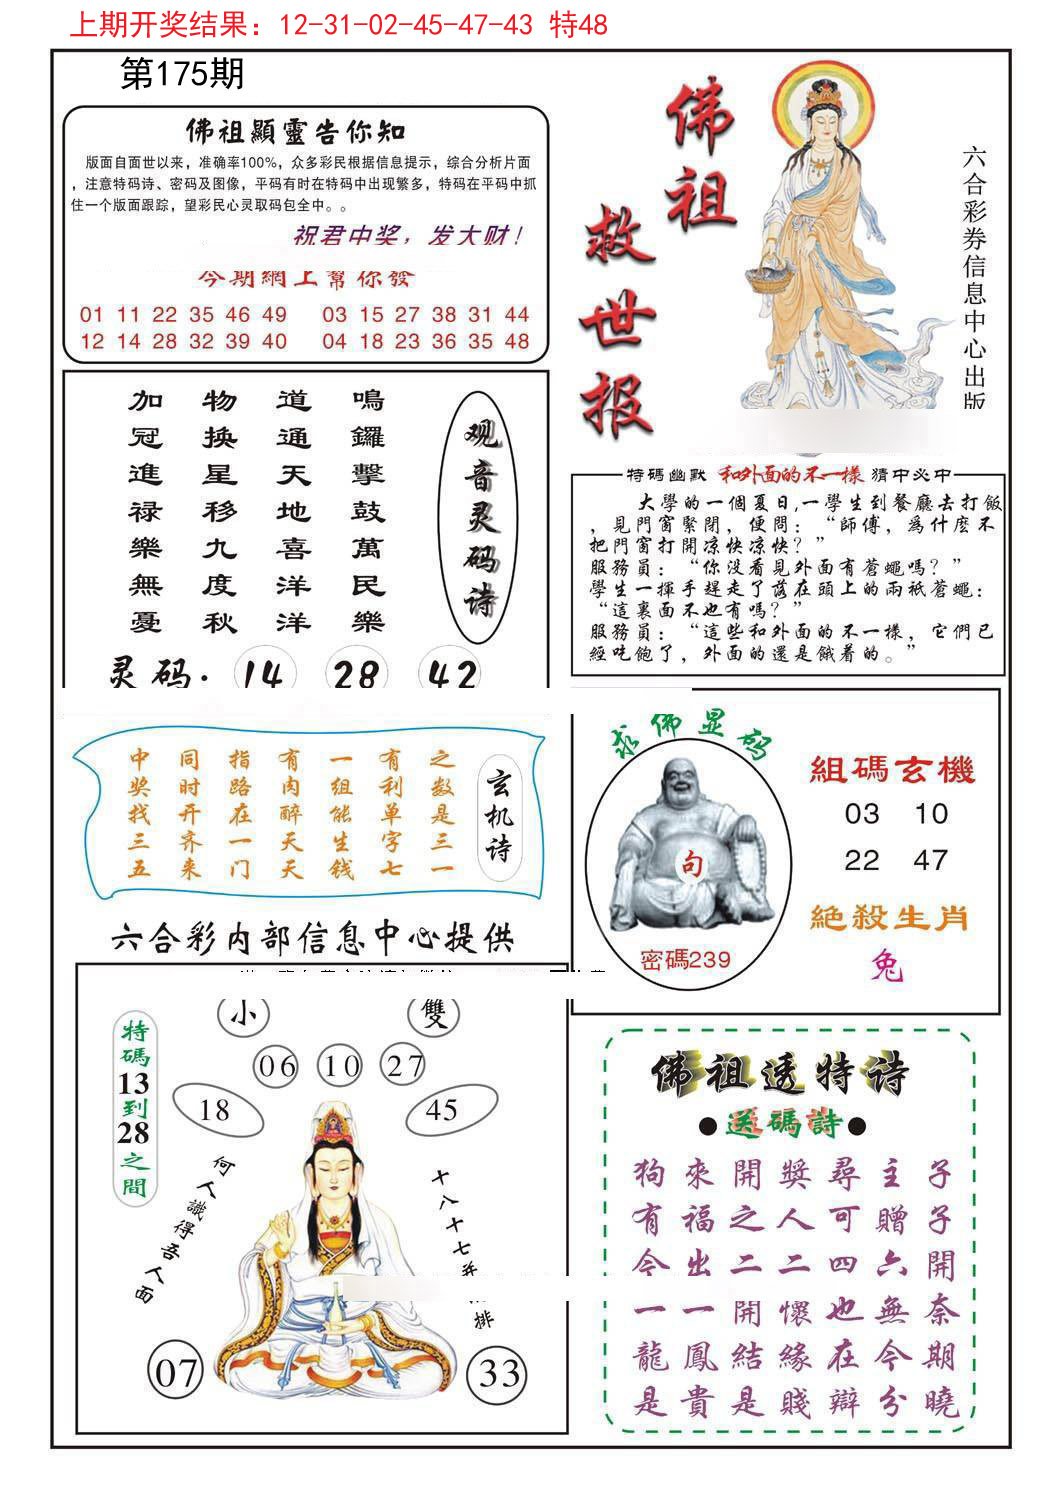 上期开奖结果：12-31-02-45-47-43 特48
第175期
佛祖顯靈告你知
版面自面世以来，准确率100%，众多彩民根据信息提示，综合分析片面
，注意特码诗、密码及图像，平码有时在特码中出现繁多，特码在平码中抓
住一个版面跟踪，望彩民心灵取码包全中。。
祝君中奖，发大财！
今期網上幫你發
01 11 22 35 46 49 03 15 27 38 31 44
12 14 28 32 39 40 04 18 23 36 35 48
佛祖
救世报
六合彩券信息中心出版
观音灵码诗
鳴鑼擊鼓萬民樂
道通天地喜洋洋
物换星移九度秋
加冠進禄樂無憂
灵码. 14 28 42
特碼幽默 和外面的不一樣 猜中必中
大學的一個夏日,一學生到餐廳去打飯
，見門窗緊閉，便問：“師傅，爲什麽不
把門窗打開凉快凉快？”
服務員：“你没看見外面有蒼蠅嗎？”
學生一揮手趕走了落在頭上的兩衹蒼蠅：
“這裏面不也有嗎？”
服務員：“這些和外面的不一樣，它們已
經吃飽了，外面的還是餓着的。”
玄机诗
之数是三一
有利单字七
一组能生钱
有肉醉天天
指路在一门
同时开齐来
中奖找三五
求佛显码
句
密碼239
組碼玄機
03 10
22 47
絶殺生肖
兔
六合彩内部信息中心提供
小 雙
06 10 27
18 45
特碼13到28之間
何人識得吾人面
十八十七并
排
07 33
佛祖透特诗
●送碼詩●
狗來開獎尋主子
有福之人可贈子
今出二二四六開
一一開懷也無奈
龍鳳結緣在今期
是貴是賤辯分曉